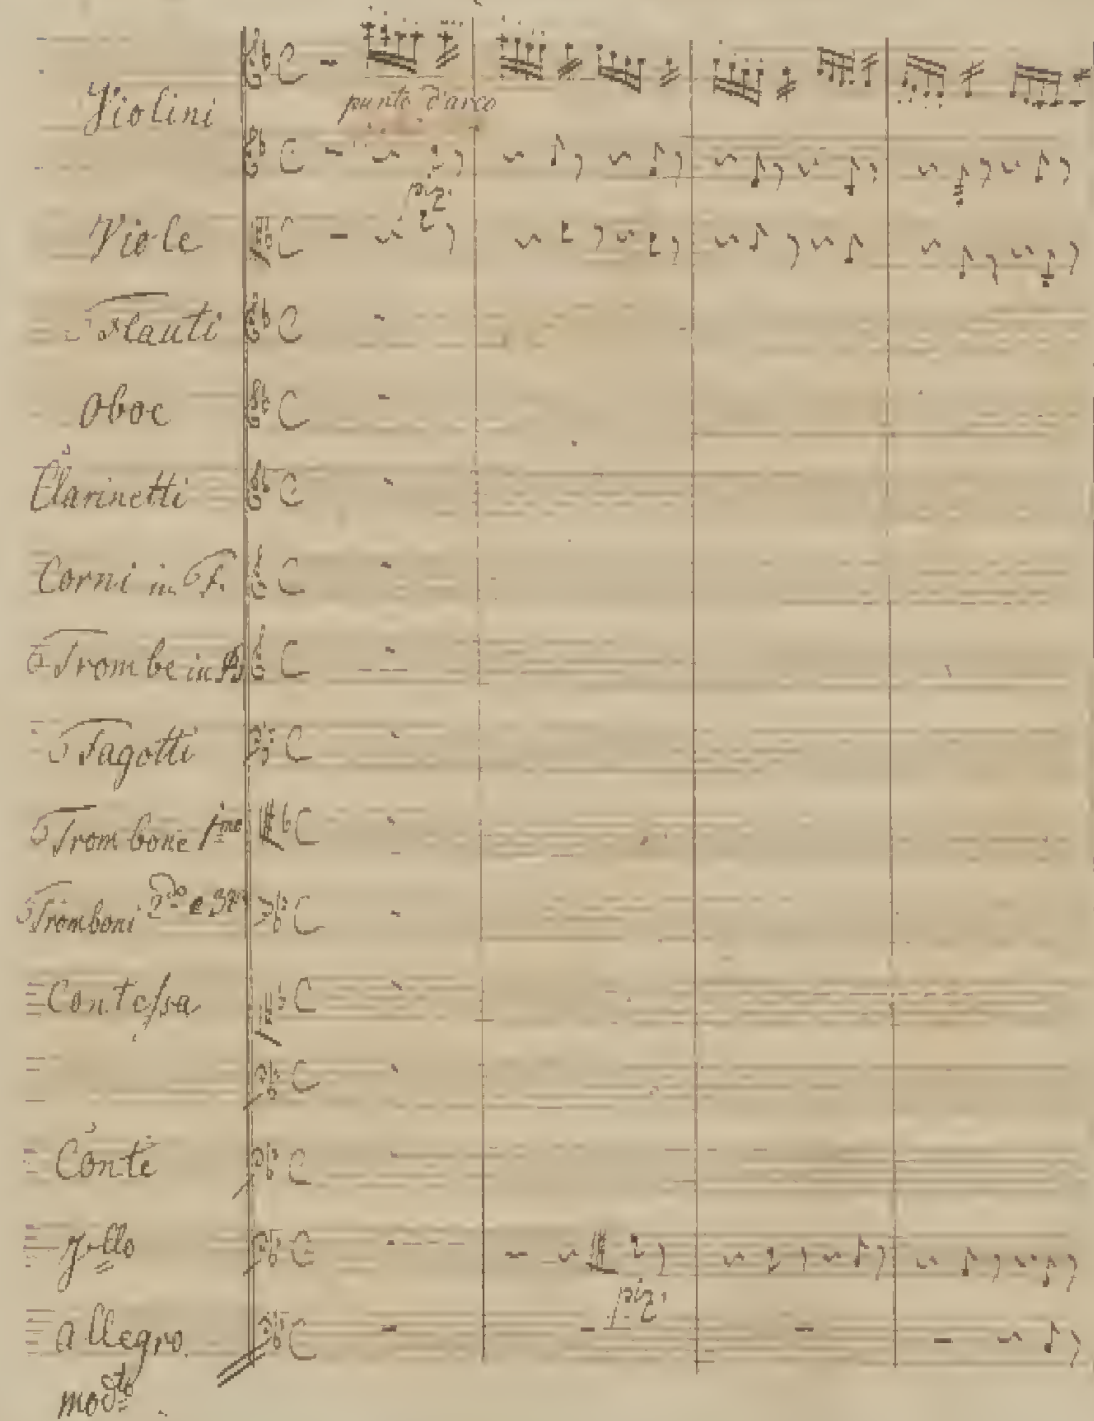 Violini
punta d'arco
piz.
Viole
Flauti
Oboe
Clarinetti
Corni in F.
Trombe in B
Fagotti
Trombone 1mo
Tromboni 2do e 3zo
Contessa
Conte
Vcllo
piz.
allegro.
modto.